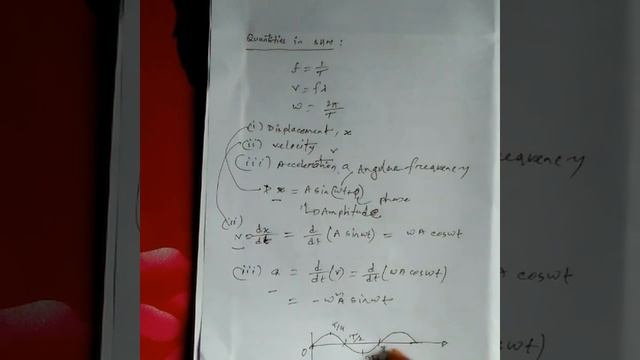 Quantities in SHM :
f = 1/T
v = fλ
ω = 2π/T
(i) Displacement, x
(ii) velocity, v
(iii) Acceleration, a
Angular frequency
x = A sin(ωt+φ)
phase
Amplitude
(ii) v = dx/dt = d/dt (A sinωt) = ωA cosωt
(iii) a = d/dt (v) = d/dt (ωA cosωt)
= -ω²A sinωt
T/4
T/2
0